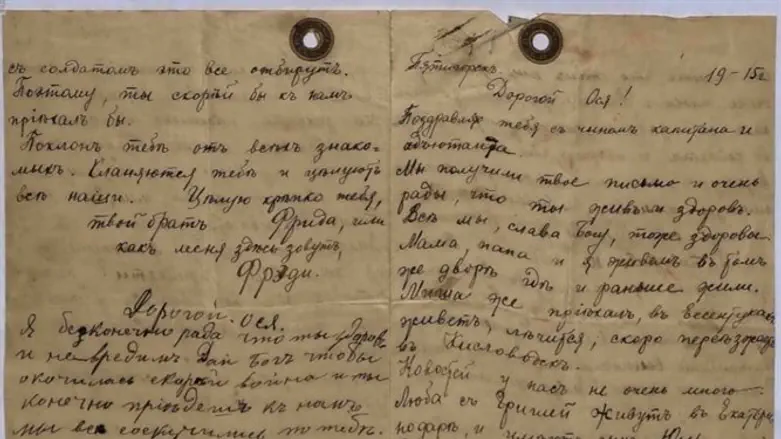 съ солдатомъ это все
Поэтому, ты скорѣй бы къ намъ
пріѣхалъ бы.
Поклонъ тебѣ отъ всѣхъ знако-
мыхъ. Кланяются тебѣ и цѣлуютъ
всѣ наши. Цѣлую крѣпко тебя,
твой братъ Фрида, или
какъ меня здѣсь зовутъ,
Фрэди.
Дорогой Ося
Я безконечно рада что ты здоровъ
и невредимъ Дай Богъ чтобы
окочилась скорѣй война и ты
конечно пріѣдешь къ намъ
мы всѣ соскучились по тебѣ.
Пятигорскъ. 19-15г
Дорогой Ося!
Поздравляю тебя съ чиномъ капитана и
адъютанта.
Мы получили твое письмо и очень
рады, что ты живъ и здоровъ.
Всѣ мы, слава Богу, тоже здоровы.
Мама, папа и я живемъ въ томъ
же дворѣ гдѣ и раньше жили.
Миша же пріѣхалъ, въ Ессентукахъ
живетъ, лѣчится, скоро
въ Кисловодскъ.
Новостей у насъ не очень много.
Люба съ Гришей живутъ въ Екатери-
нодарѣ, и